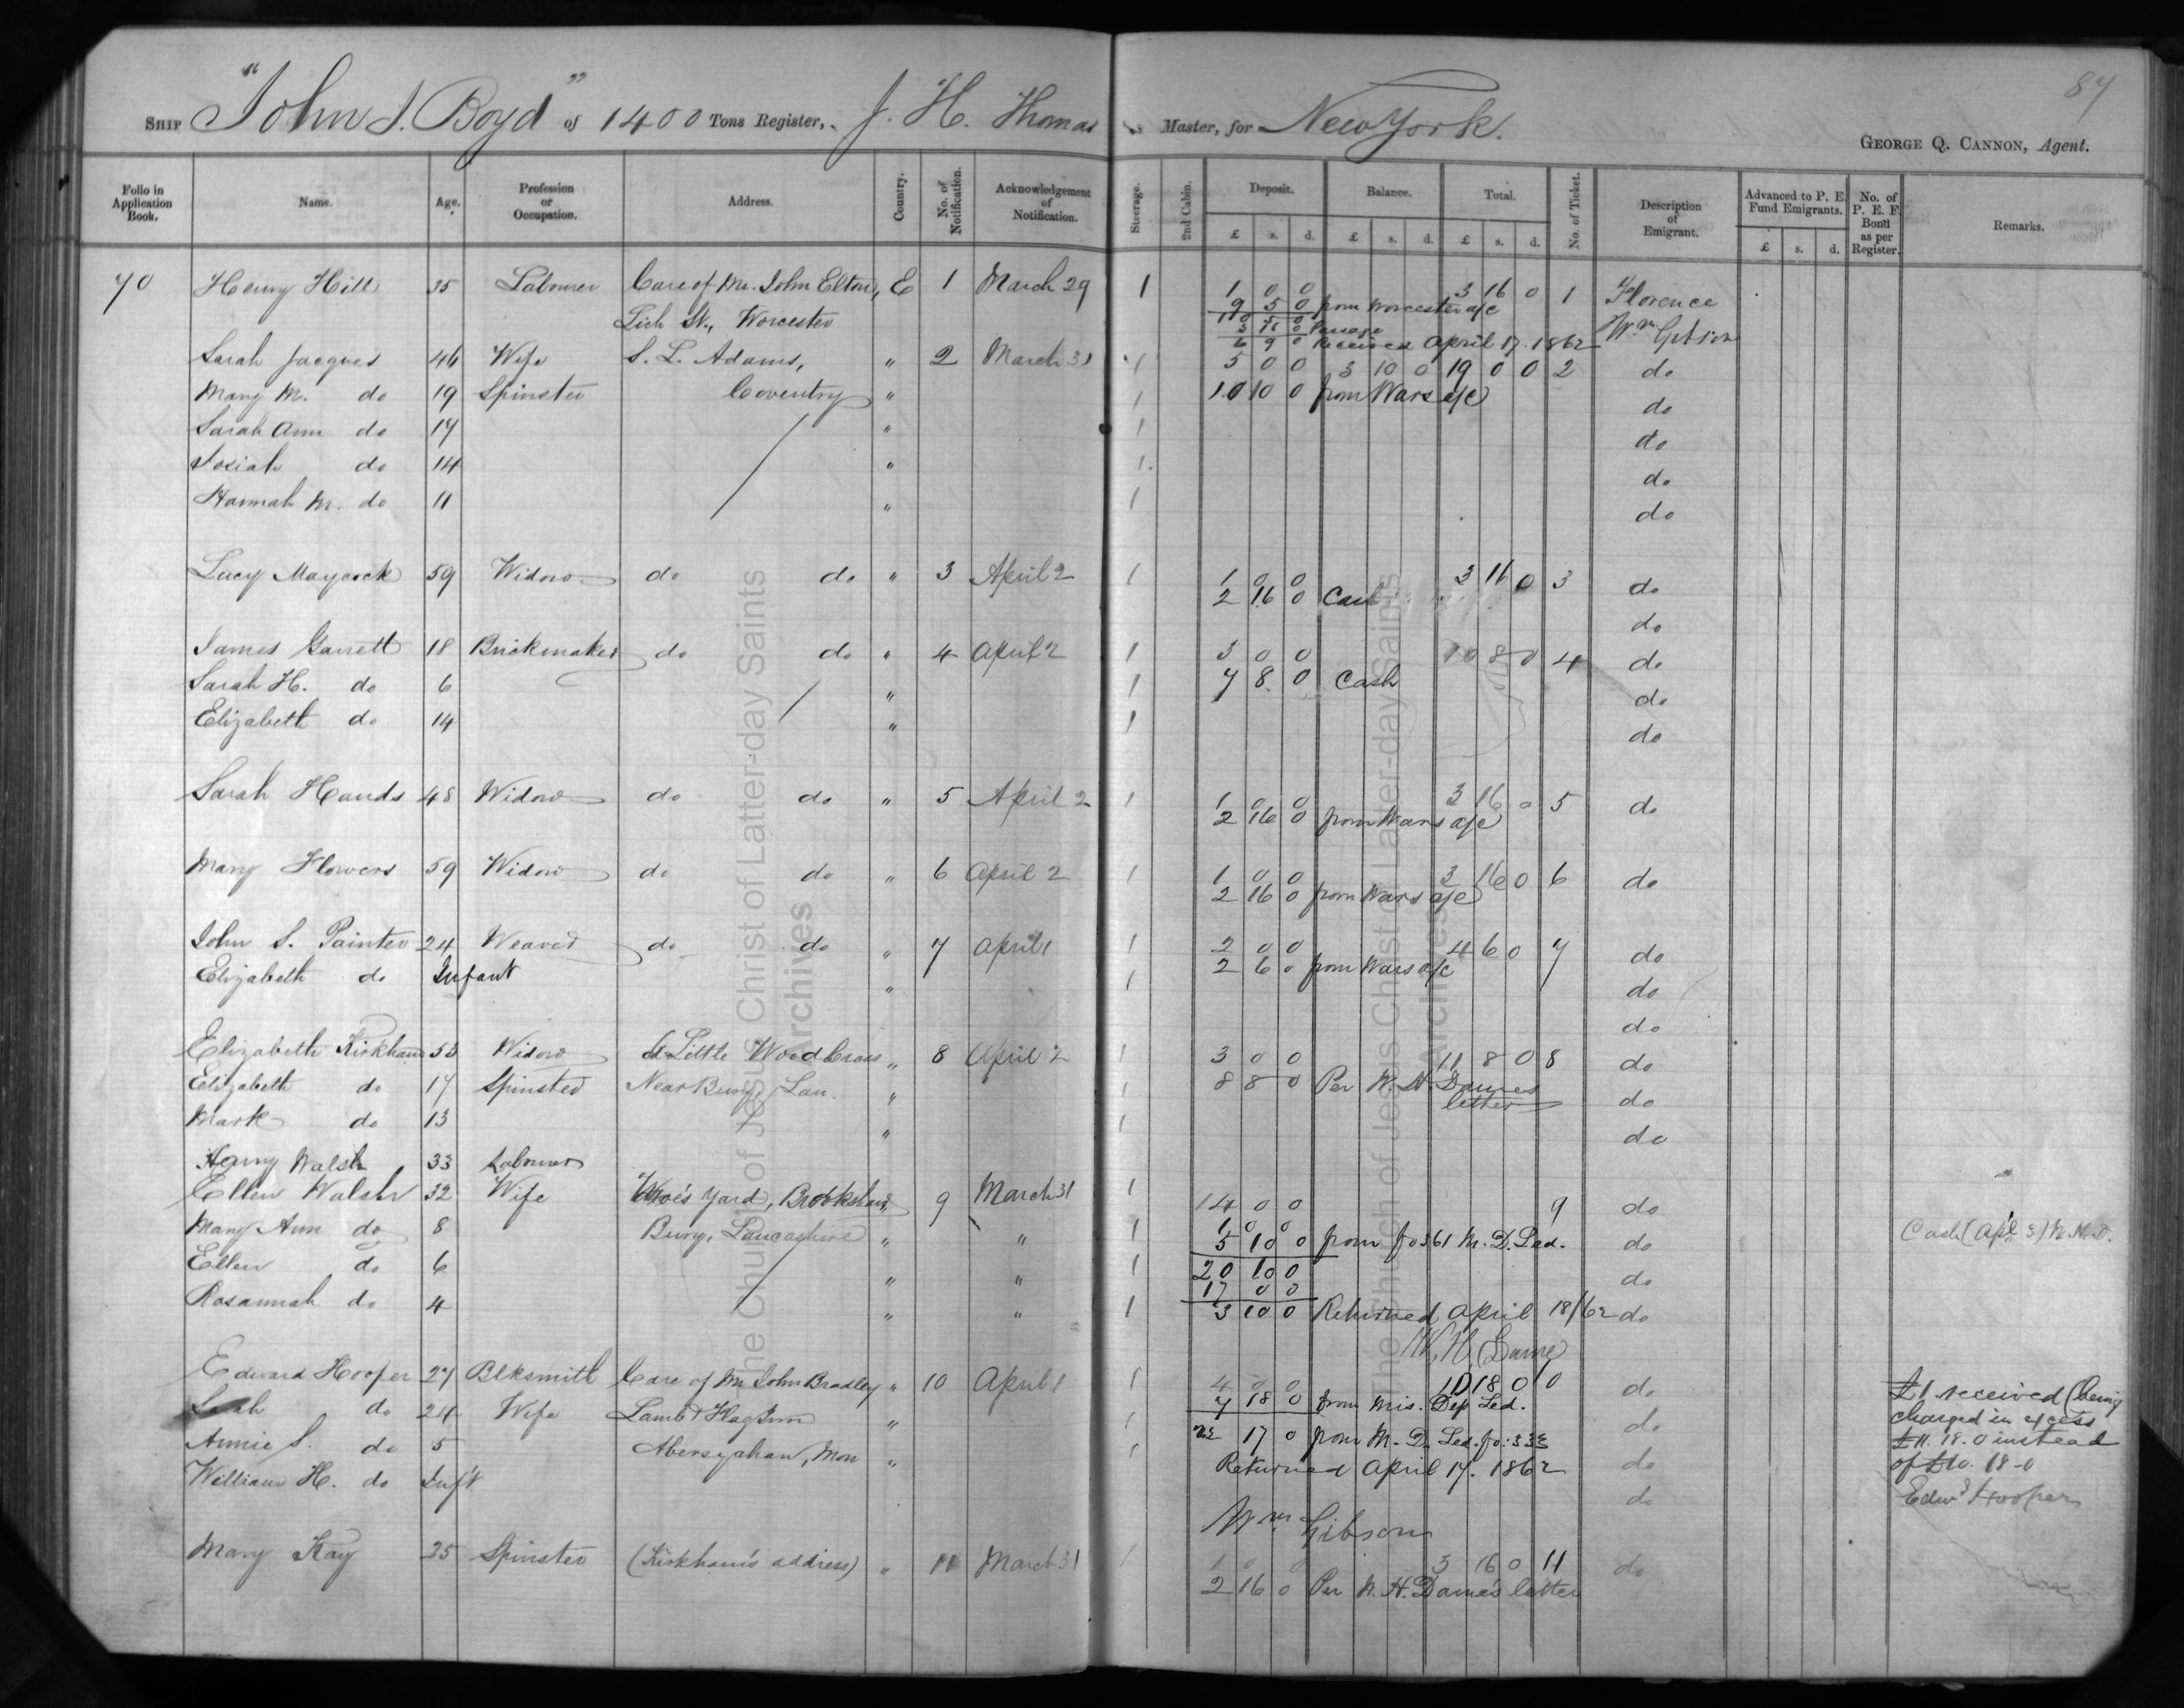 87
SHIP "John J. Boyd" of 1400 Tons Register, J. H. Thomas Master, for New York.
GEORGE Q. CANNON, Agent.
Folio in Application Book. Name. Age. Profession or Occupation. Address. Country. No. of Notification. Acknowledgement of Notification. Steerage. 2nd Cabin. Deposit. Balance. Total. No. of Ticket. Description of Emigrant. Advanced to P. E. Fund Emigrants. No. of P. E. F. Bond as per Register. Remarks.
£ s. d. £ s. d. £ s. d. £ s. d.
70 Henry Hill 35 Labourer Care of Mr. John Elton, E 1 March 29 1 1 0 0 3 16 0 1 Florence
9 5 0 from Worcester a/c
Lich St., Worcester 10 5 0
3 16 0 Passage Wm Gibson
6 9 0 Received April 17. 1862
Sarah Jacques 46 Wife S. L. Adams, " 2 March 31 1 5 0 0 3 10 0 19 0 0 2 do
Mary M. do 19 Spinster Coventry " 1 10 10 0 from Wars a/c do
Sarah Ann do 17 " 1 do
Josiah do 14 " 1 do
Hannah M. do 11 " 1 do
Lucy Maycock 59 Widow do do " 3 April 2 1 1 0 0 3 16 0 3 do
2 16 0 Cash
do
James Garrett 18 Brickmaker do do " 4 April 2 1 3 0 0 10 8 0 4 do
Sarah H. do 6 " 1 7 8 0 Cash do
Elizabeth do 14 " 1 do
Sarah Hands 48 Widow do do " 5 April 2 1 1 0 0 3 16 0 5 do
2 16 0 from Wars a/c
Mary Flowers 59 Widow do do " 6 April 2 1 1 0 0 3 16 0 6 do
2 16 0 from Wars a/c
John S. Painter 24 Weaver do do " 7 April 1 1 2 0 0 4 6 0 7 do
2 6 0 from Wars a/c
Elizabeth do Infant " 1 do
do
Elizabeth Kirkham 53 Widow Little Wood Cross " 8 April 2 1 3 0 0 11 8 0 8 do
Elizabeth do 17 Spinster Near Bury, Lan. " 1 8 8 0 Per W. H. Dame's letter do
Mark do 13 " 1 do
Henry Walsh 33 Labourer
Ellen Walsh 32 Wife Yard, Brookshaw, 9 March 31 1 14 0 0 9 do
Mary Ann do 8 Bury, Lancashire " " 1 1 0 0 do Cash (Apl 3) W. H. D.
5 10 0 from fo 361 M. D. Led.
Ellen do 6 " " 1 20 10 0 do
17 0 0
Rosannah do 4 " " 1 3 10 0 Returned April 18/62 do
W. H. Dame
Edward Hooper 27 Blksmith Care of Mr John Bradley " 10 April 1 1 4 0 0 10 18 0 0 do £1 received (being
7 18 0 from Mis. Dep Led.
Sarah do 24 Wife Lamb & Flag Inn " 1 17 0 from M. D. Led. fo: 333 do charged in excess
£11. 18. 0 instead
Annie S. do 5 Abersychan, Mon " 1 Returned April 17. 1862 do of £10. 18-0
William H. do Inf't do Edwd Hooper
Wm Gibson
Mary Kay 25 Spinster (Kirkham's address) " 11 March 31 1 1 0 0 3 16 0 11 do
2 16 0 Per W. H. Dame's letter
The Church of Jesus Christ of Latter-day Saints
Archives
The Church of Jesus Christ of Latter-day Saints
Archives